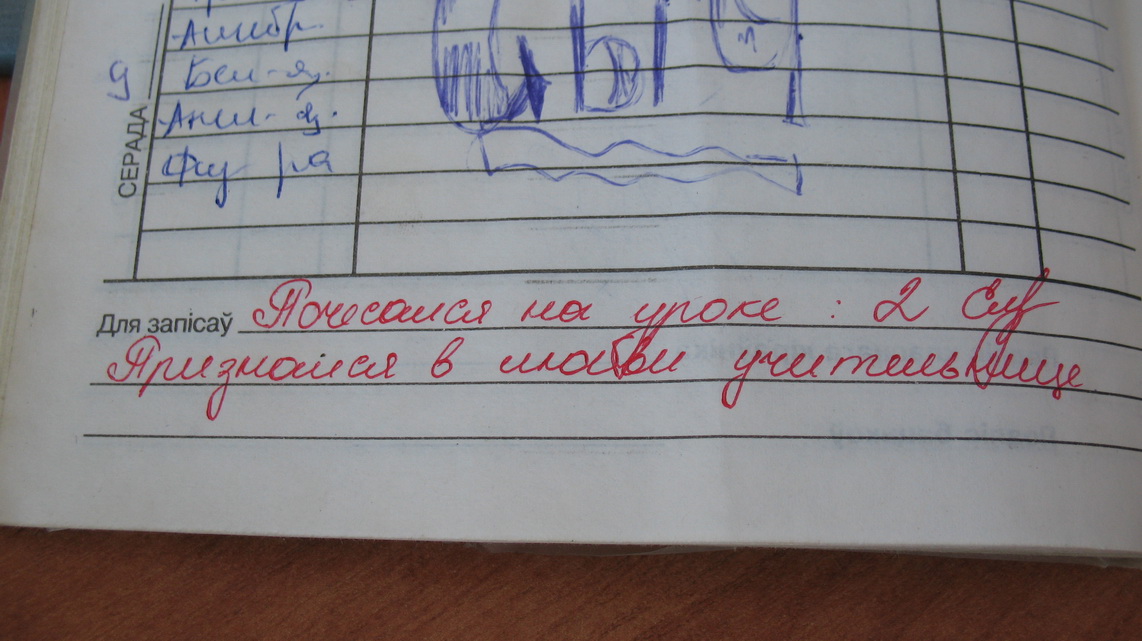 Алгебр.
Бел-яз.
Англ-яз.
Физ-ра
СЕРАДА
9
Для запісаў Почесался на уроке : 2
Признался в любви учительнице